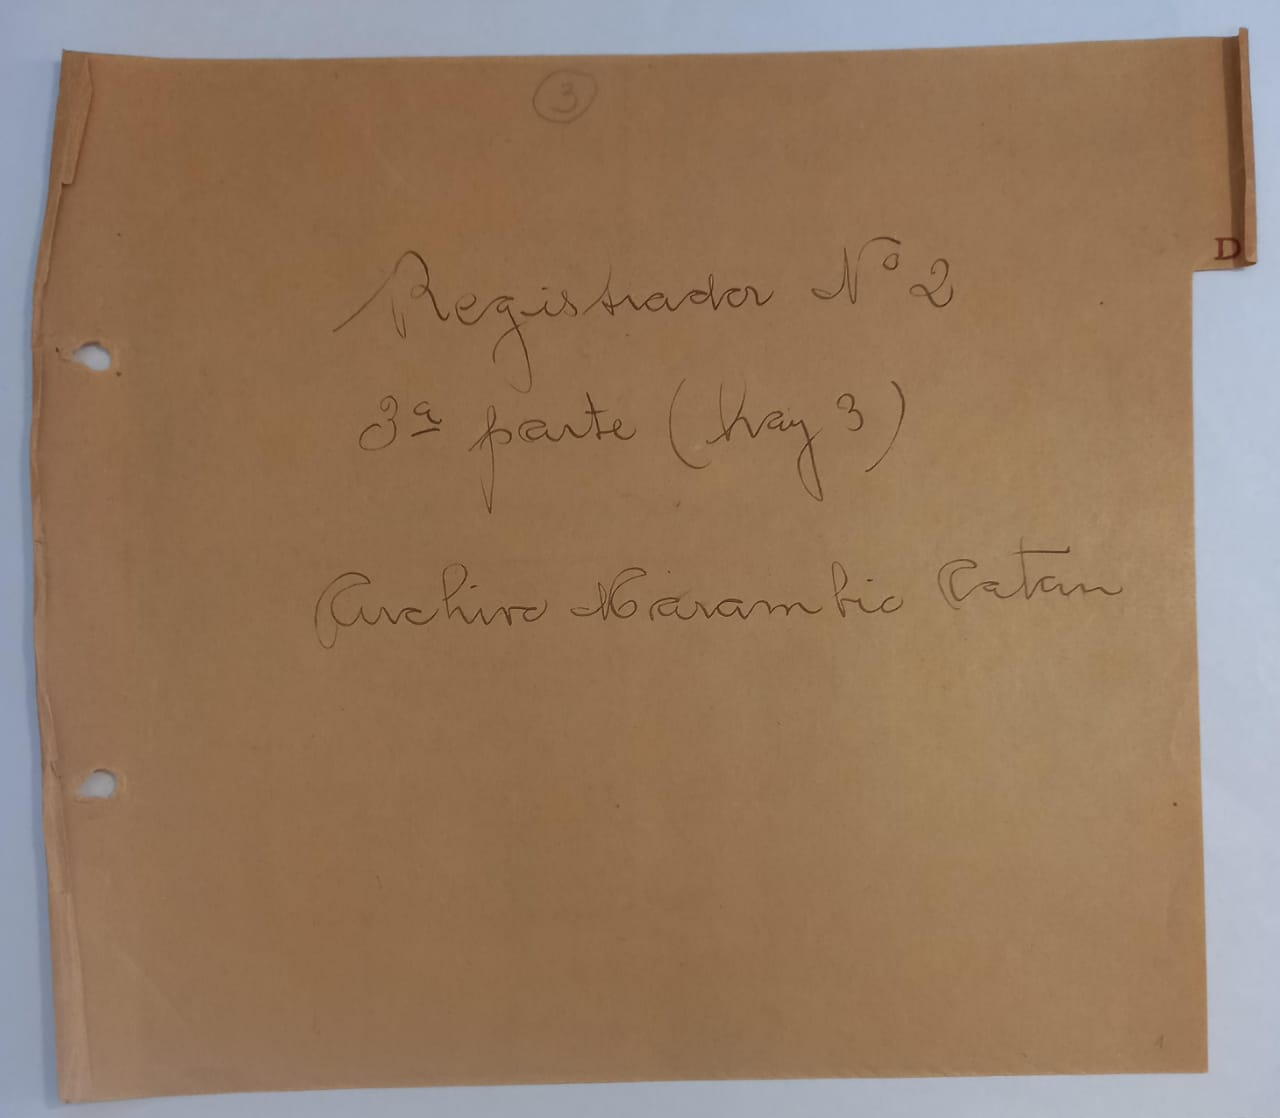 3
D
Registrador Nº 2
3ª parte (hay 3)
Archivo Marambio Catan
1